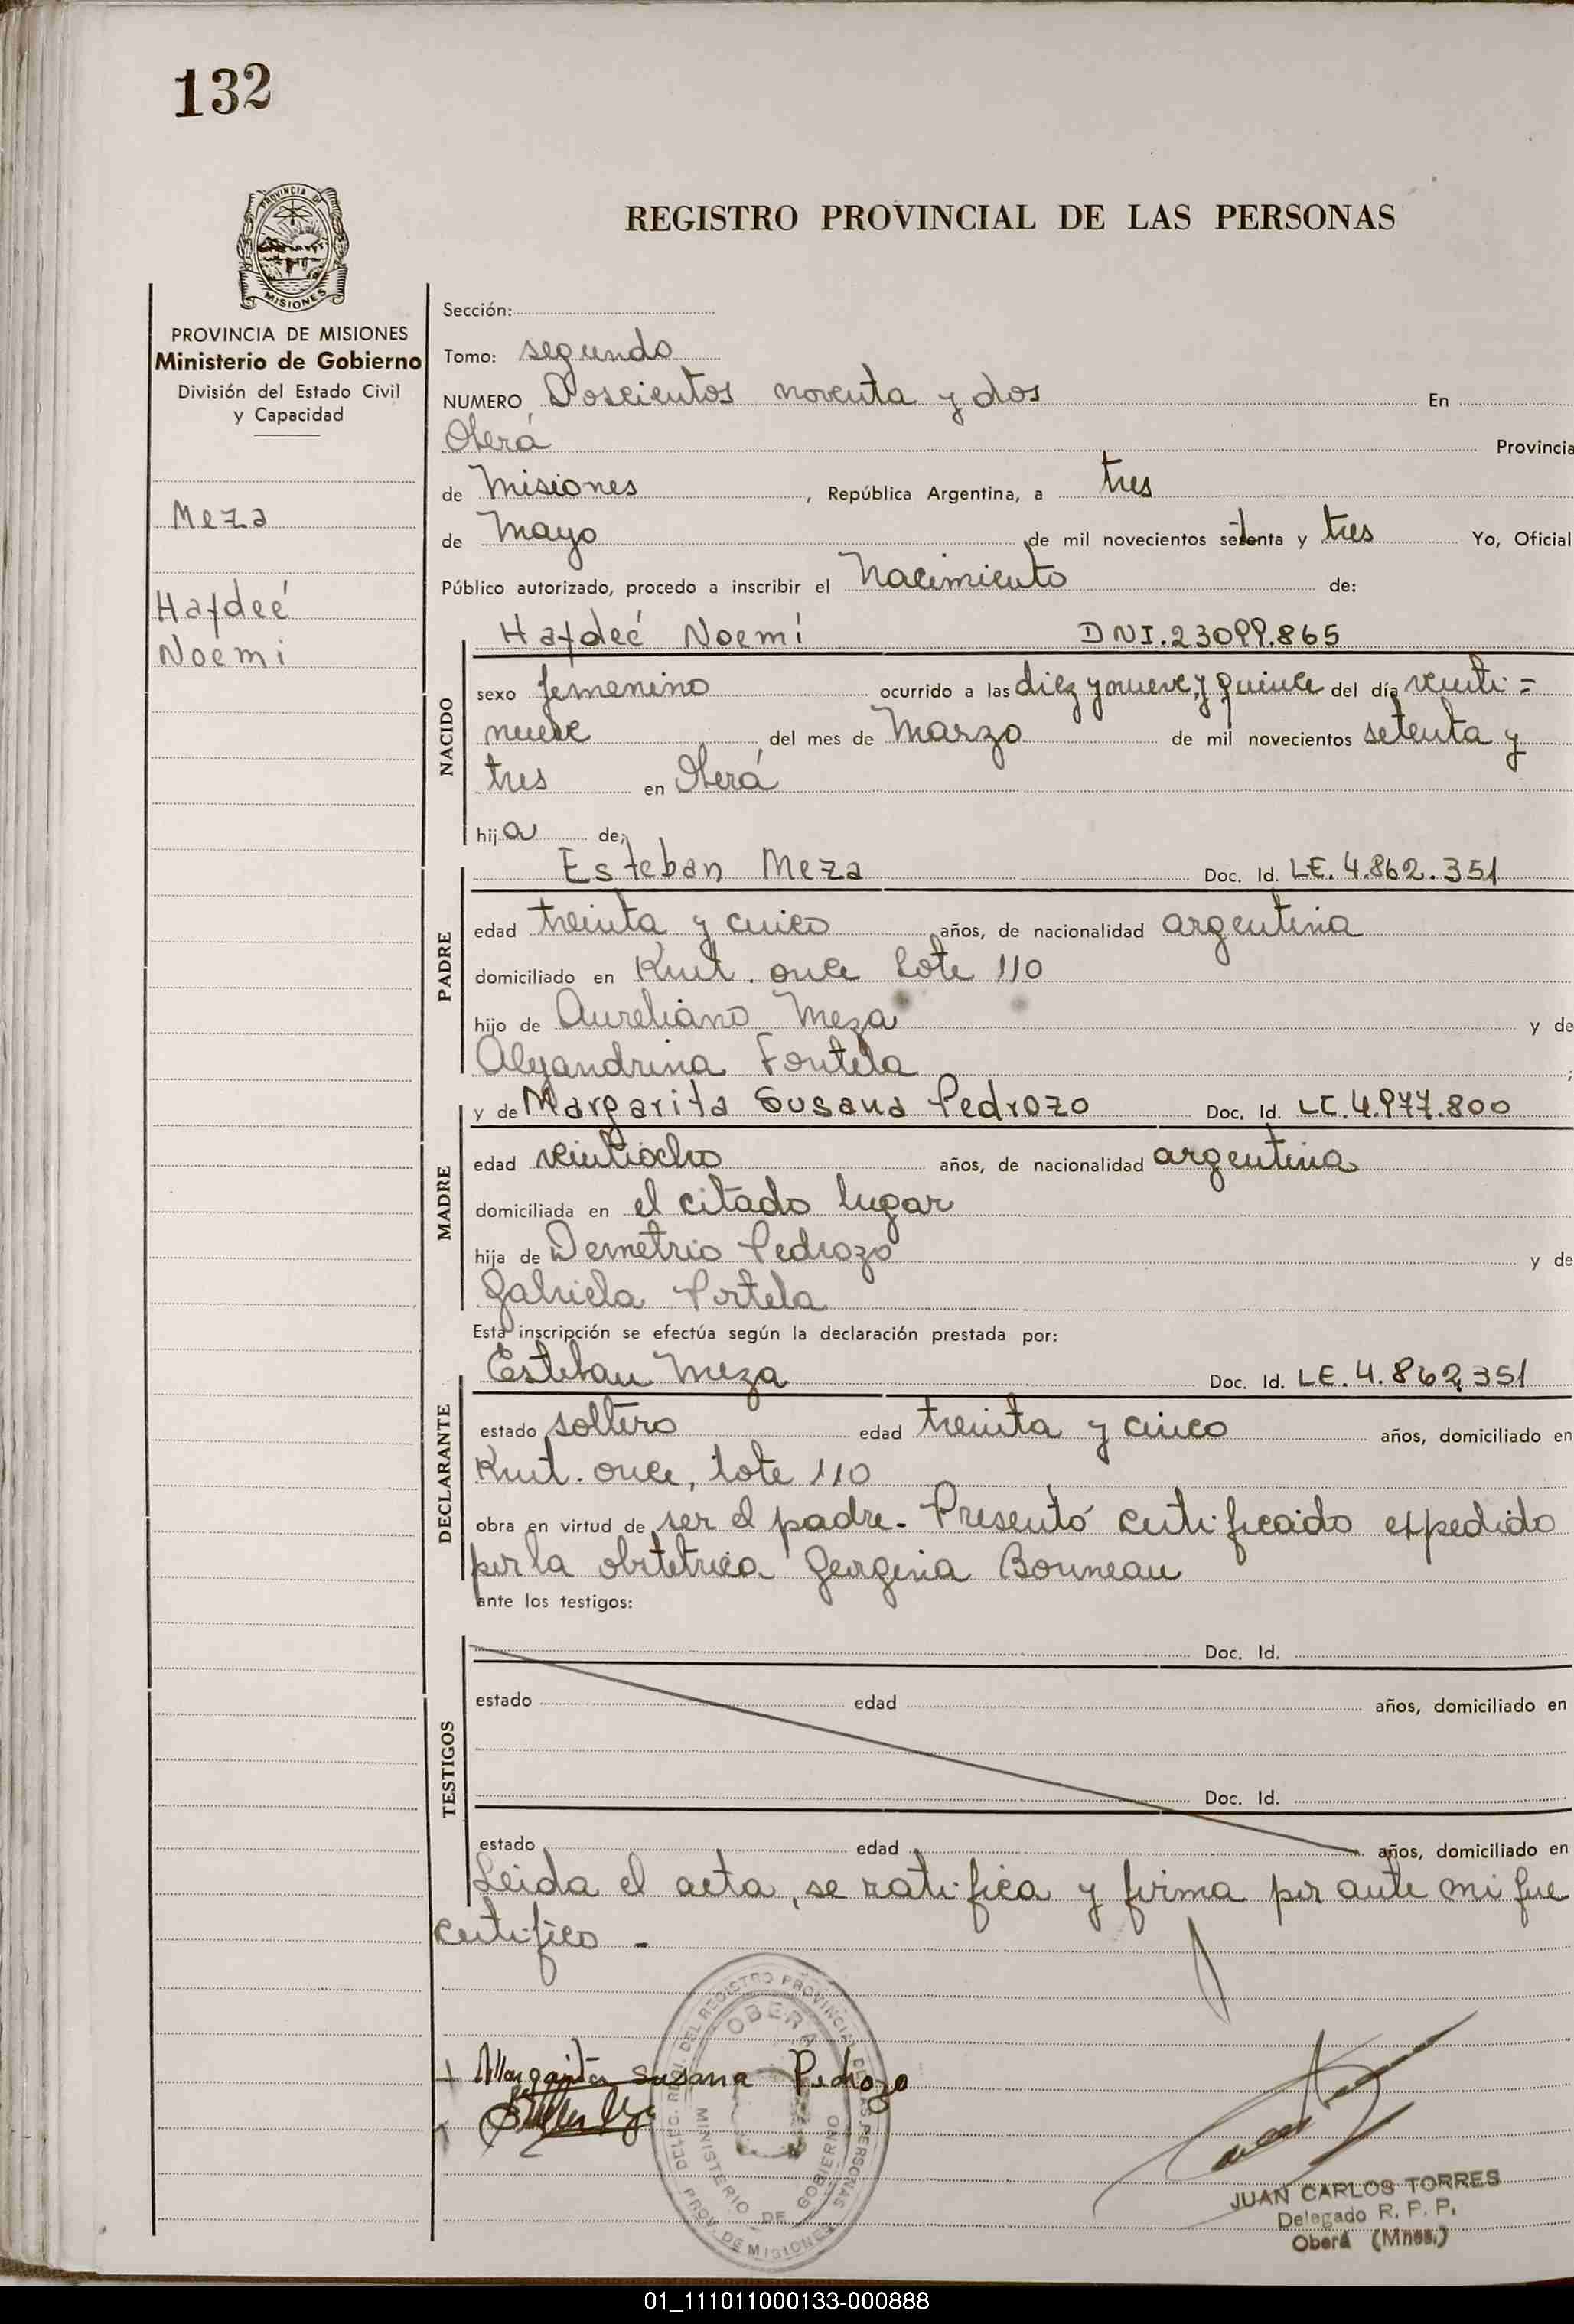 132
PROVINCIA DE
MISIONES
REGISTRO PROVINCIAL DE LAS PERSONAS
PROVINCIA DE MISIONES
Ministerio de Gobierno
División del Estado Civil
y Capacidad
Meza
Haydeé
Noemi
Sección:
Tomo: segundo
NUMERO Doscientos noventa y dos En
Oberá Provincia
de Misiones, República Argentina, a tres
de Mayo de mil novecientos setenta y tres Yo, Oficial
Público autorizado, procedo a inscribir el Nacimiento de:
Haydeé Noemí DNI.23099.865
NACIDO
sexo femenino ocurrido a las diez y nueve, y quince del día veinti=
nueve del mes de Marzo de mil novecientos setenta y
tres en Oberá
hija de;
Esteban Meza Doc. Id. LE. 4.862.351
PADRE
edad treinta y cinco años, de nacionalidad argentina
domiciliado en Kmt. once lote 110
hijo de Aureliano Meza y de
Alejandrina Fontela ;
y de Margarita Susana Pedrozo Doc. Id. LC.4.977.800
MADRE
edad veintiocho años, de nacionalidad argentina
domiciliada en el citado lugar
hija de Demetrio Pedrozo y de
Gabriela Portela
Esta inscripción se efectúa según la declaración prestada por:
Esteban Meza Doc. Id. LE. 4.862.351
DECLARANTE
estado soltero edad treinta y cinco años, domiciliado en
Kmt. once, lote 110
obra en virtud de ser el padre.- Presentó certificado expedido
por la obstetrica Georgina Bonneau
ante los testigos:
TESTIGOS
Doc. Id.
estado edad años, domiciliado en
Doc. Id.
estado edad años, domiciliado en
Leida el acta, se ratifica y firma por ante mi que
certifico -
Margarita Susana Pedrozo
DELEG. REGI. DEL REGISTRO PROVINCIAL DE LAS PERSONAS
OBERA
MINISTERIO DE GOBIERNO
PROV. DE MISIONES
JUAN CARLOS TORRES
Delegado R. P. P.
Oberá (Mnes.)
01_111011000133-000888